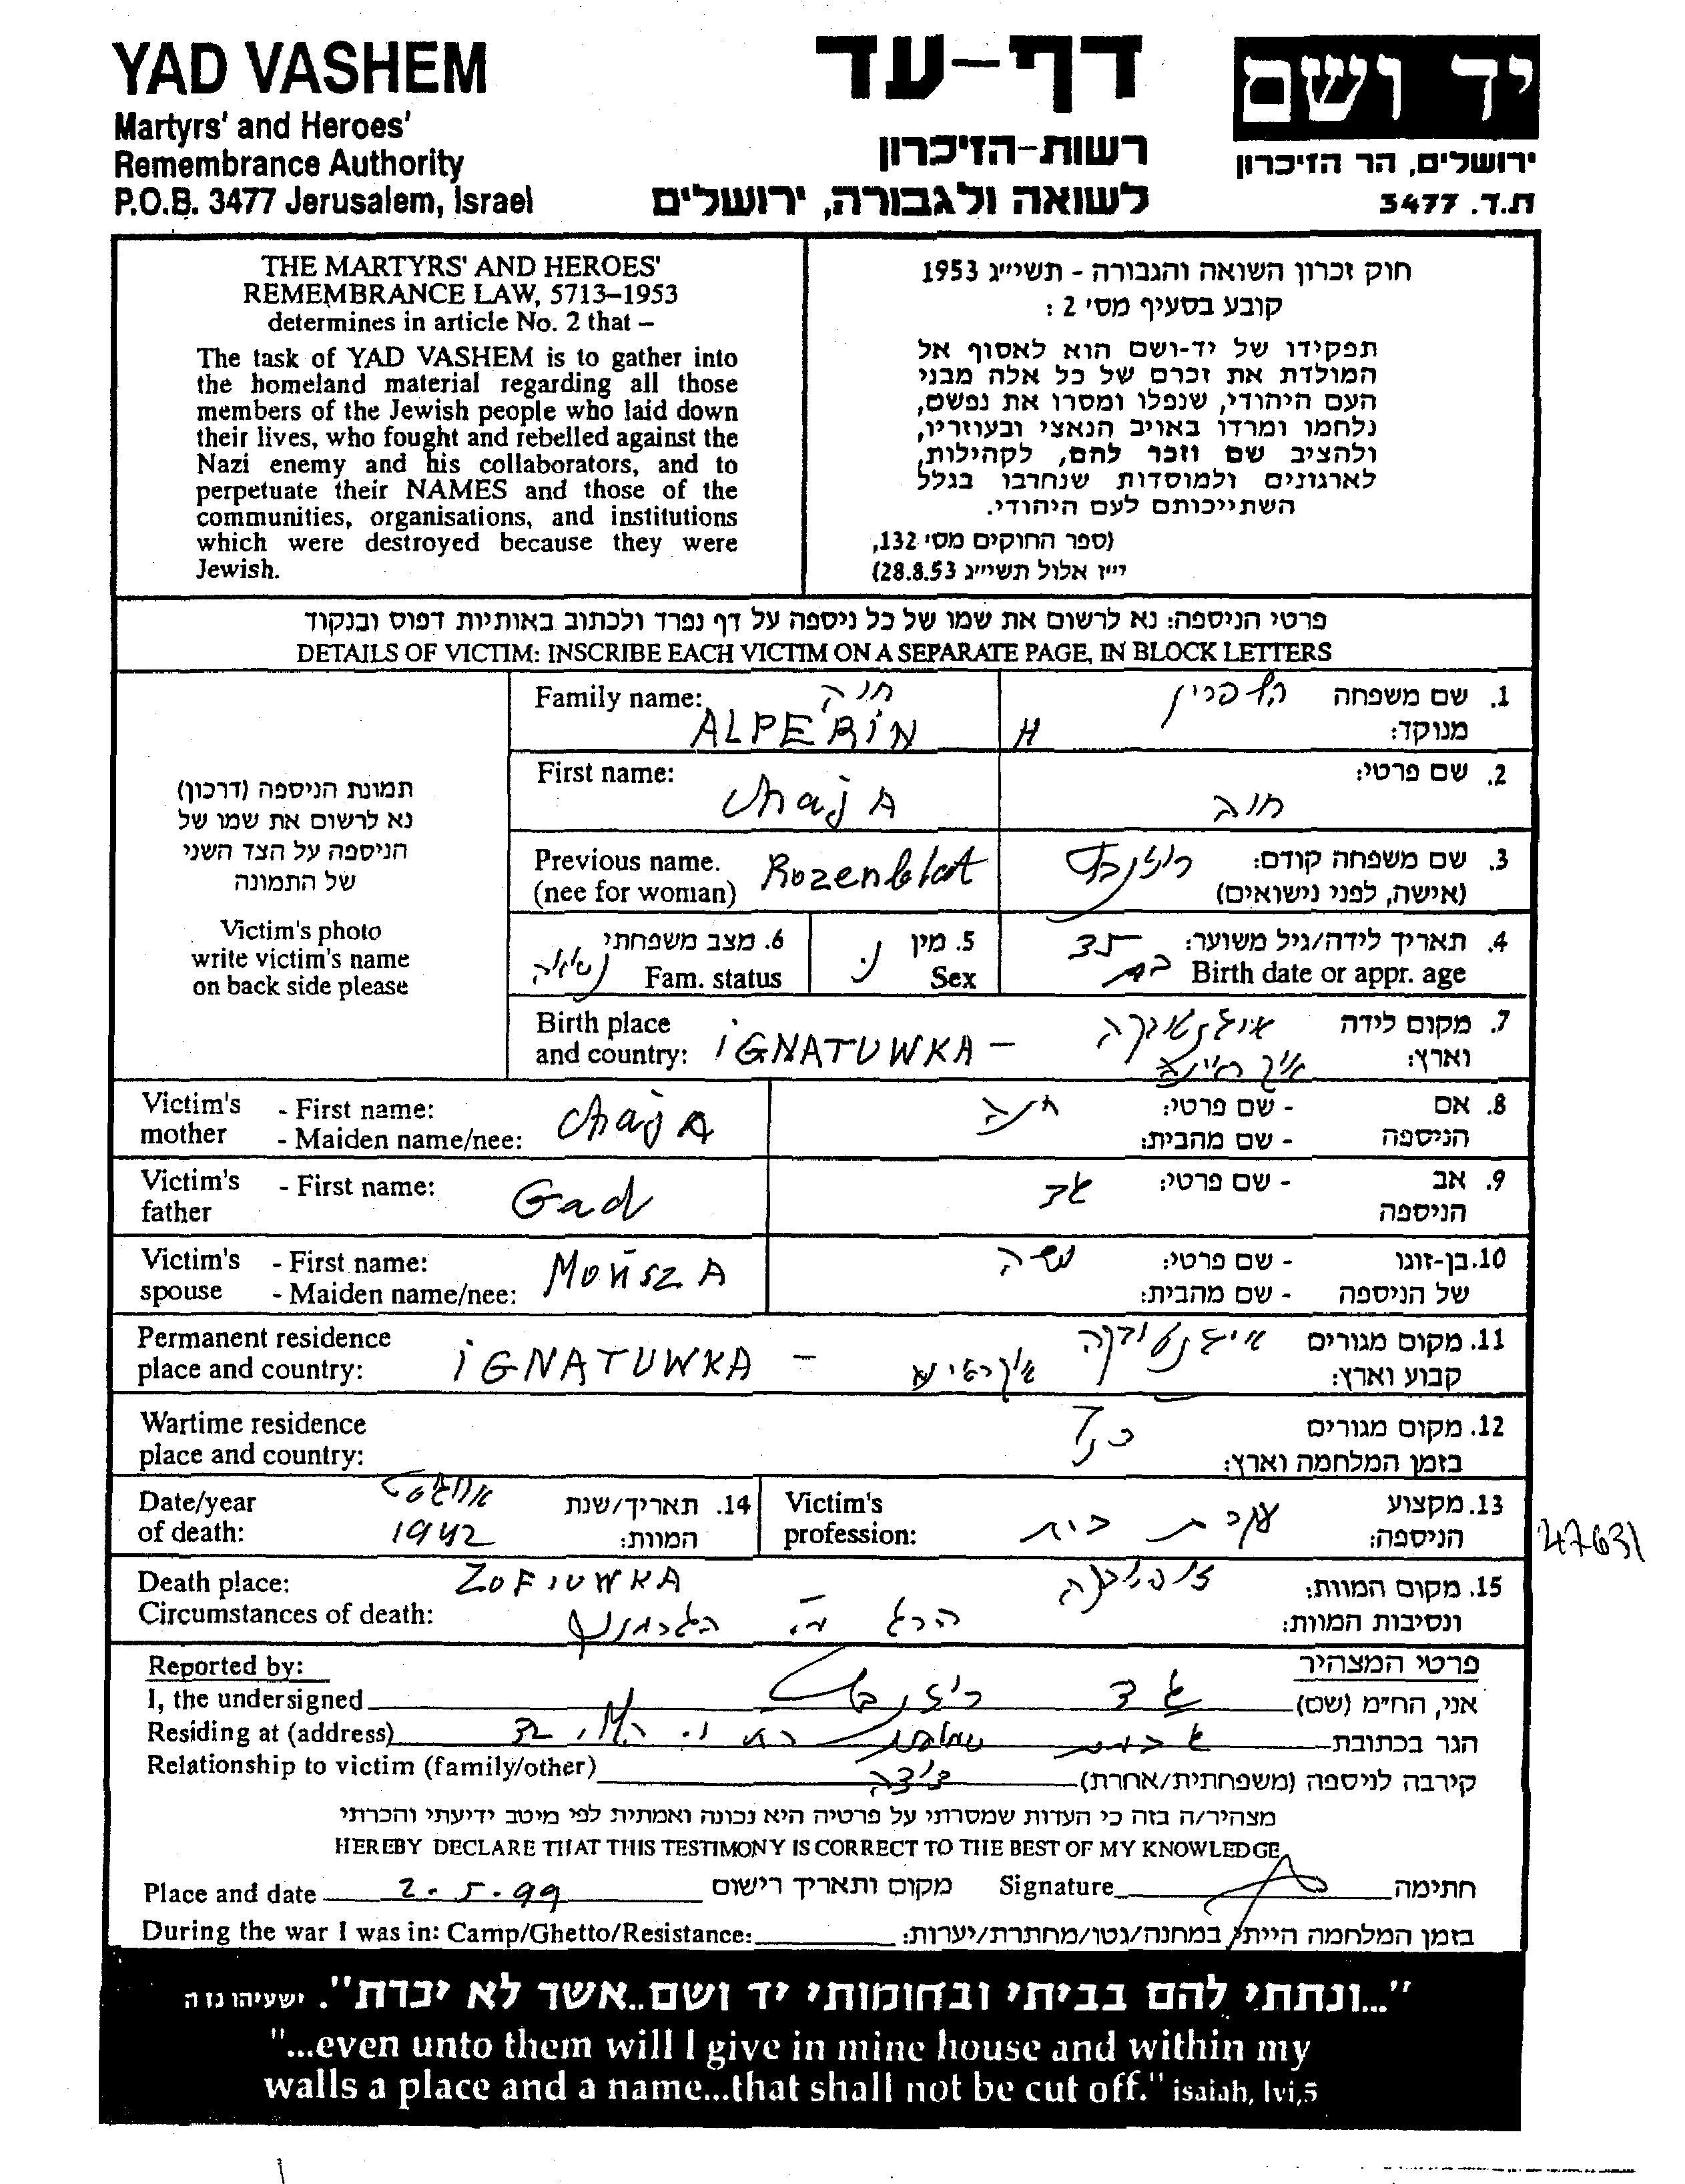 YAD VASHEM
Martyrs' and Heroes'
Remembrance Authority
P.O.B. 3477 Jerusalem, Israel
דף-עד
רשות-הזיכרון
לשואה ולגבורה, ירושלים
יד ושם
ירושלים, הר הזיכרון
ת.ד. 3477
THE MARTYRS' AND HEROES'
REMEMBRANCE LAW, 5713–1953
determines in article No. 2 that –
The task of YAD VASHEM is to gather into
the homeland material regarding all those
members of the Jewish people who laid down
their lives, who fought and rebelled against the
Nazi enemy and his collaborators, and to
perpetuate their NAMES and those of the
communities, organisations, and institutions
which were destroyed because they were
Jewish.
חוק זכרון השואה והגבורה - תשי״ג 1953
קובע בסעיף מס׳ 2 :
תפקידו של יד-ושם הוא לאסוף אל
המולדת את זכרם של כל אלה מבני
העם היהודי, שנפלו ומסרו את נפשם,
נלחמו ומרדו באויב הנאצי ובעוזריו,
ולהציב שם וזכר להם, לקהילות,
לארגונים ולמוסדות שנחרבו בגלל
השתייכותם לעם היהודי.
(ספר החוקים מס׳ 132,
י״ז אלול תשי״ג 28.8.53)
פרטי הניספה: נא לרשום את שמו של כל ניספה על דף נפרד ולכתוב באותיות דפוס ובנקוד
DETAILS OF VICTIM: INSCRIBE EACH VICTIM ON A SEPARATE PAGE, IN BLOCK LETTERS
תמונת הניספה (דרכון)
נא לרשום את שמו של
הניספה על הצד השני
של התמונה
Victim's photo
write victim's name
on back side please
Family name: חיה
ALPERIN
H
1. שם משפחה הלפרין
מנוקד:
First name: ChajA
2. שם פרטי:
חיה
Previous name. Rozenblat
(nee for woman)
3. שם משפחה קודם: רוזנבלט
(אישה, לפני נישואים)
6. מצב משפחתי
Fam. status נשואה
5. מין נ.
Sex
4. תאריך לידה/גיל משוער:
Birth date or appr. age 35
Birth place
and country: IGNATUWKA –
7. מקום לידה איגנטובקה
וארץ: אוקראינה
Victim's - First name:
mother - Maiden name/nee: ChajA
8. אם - שם פרטי: חיה
הניספה - שם מהבית:
Victim's - First name: Gad
father
9. אב - שם פרטי: גד
הניספה
Victim's - First name:
spouse - Maiden name/nee: MoiszA
10. בן-זוגו - שם פרטי: משה
של הניספה - שם מהבית:
Permanent residence
place and country: IGNATUWKA –
11. מקום מגורים איגנטובקה
קבוע וארץ: אוקראינה
Wartime residence
place and country:
12. מקום מגורים כנ״ל
בזמן המלחמה וארץ:
Date/year אוגוסט
of death: 1942
14. תאריך/שנת
המוות:
Victim's
profession: עקרת בית
13. מקצוע
הניספה:
47631
Death place: ZOFIUWKA
Circumstances of death:
15. מקום המוות: זופיובקה
ונסיבות המוות: הרג ע״י הגרמנים
Reported by:
פרטי המצהיר
I, the undersigned
אני, הח״מ (שם) גד רוזנבלט
Residing at (address)
הגר בכתובת
Relationship to victim (family/other)
קירבה לניספה (משפחתית/אחרת) דודה
מצהיר/ה בזה כי העדות שמסרתי על פרטיה היא נכונה ואמתית לפי מיטב ידיעתי והכרתי
HEREBY DECLARE THAT THIS TESTIMONY IS CORRECT TO THE BEST OF MY KNOWLEDGE
Place and date 2.5.99 מקום ותאריך רישום Signature חתימה
During the war I was in: Camp/Ghetto/Resistance: בזמן המלחמה הייתי במחנה/גטו/מחתרת/יערות:
"...ונתתי להם בביתי ובחומותי יד ושם..אשר לא יכרת". ישעיהו נז ה
"...even unto them will I give in mine house and within my
walls a place and a name...that shall not be cut off." isaiah, lvi,5